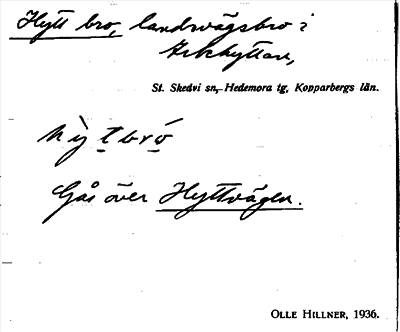 Hytt bro, landsvägsbro i
Arkhyttan,
St. Skedvi sn, Hedemora tg, Kopparbergs län.
Gås över Hyttvägen.
OLLE HILLNER, 1936.